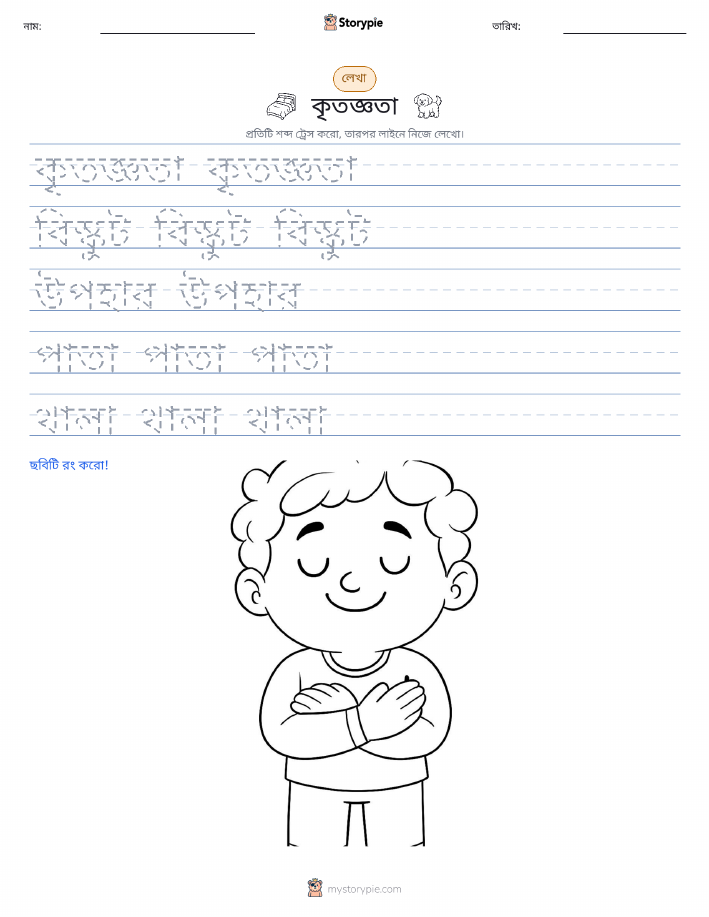 নাম:
Storypie
তারিখ:
লেখা
কৃতজ্ঞতা
প্রতিটি শব্দ ট্রেস করো, তারপর লাইনে নিজে লেখো।
কৃতজ্ঞতা কৃতজ্ঞতা
বিস্কুট বিস্কুট বিস্কুট
উপহার উপহার
পাতা পাতা পাতা
থালা থালা থালা
ছবিটি রং করো!
mystorypie.com